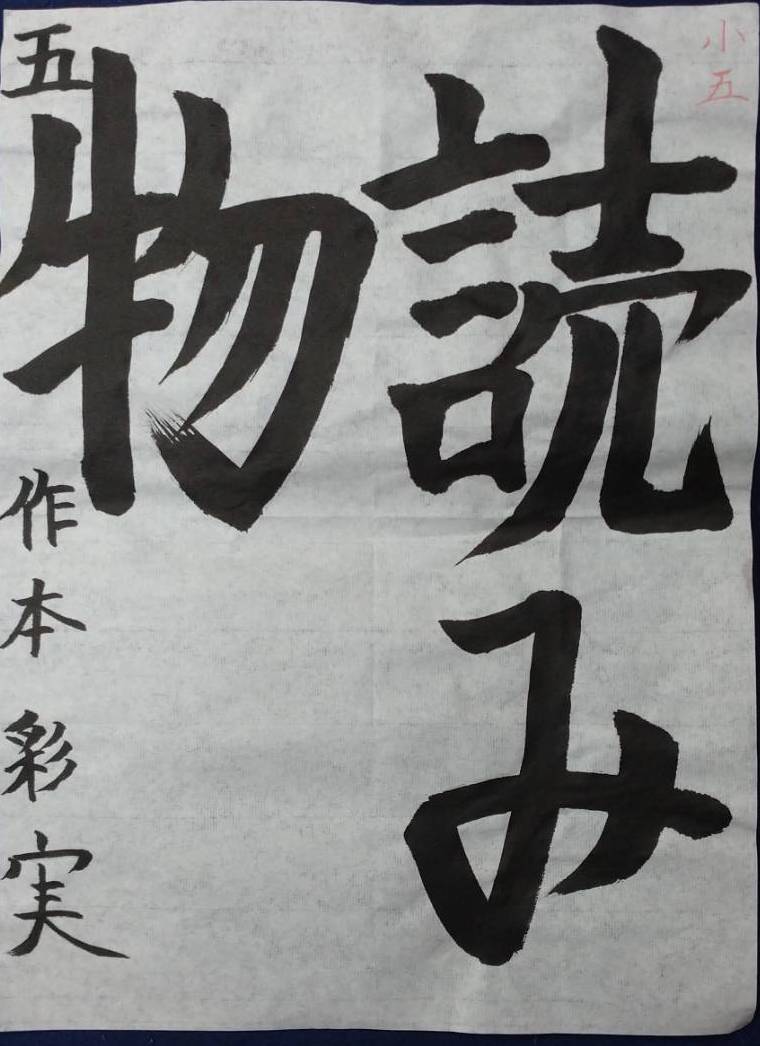 小五
読み
物
五 作本彩実